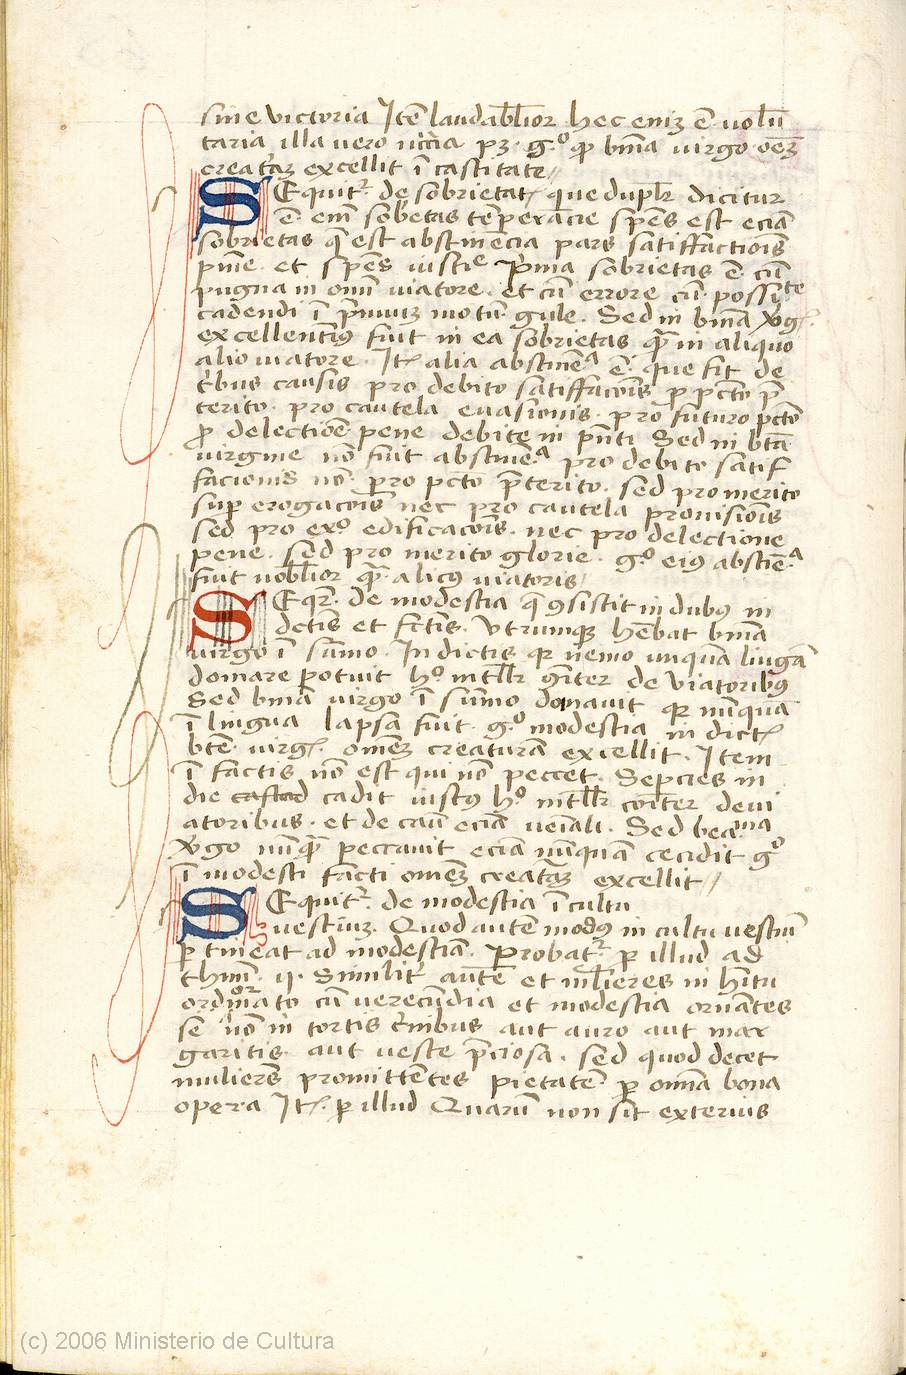 sine victoria Itē laudabl̄ior hec eniz ē volū
taria illa vero nc̄c̄ia pꝫ gͦ ꝙ bm̄a virgo oēꝫ
creat'aꝫ excellit ī castitate //
SEquit᷑ de sobrietat que dupl̄r dicitur
ē em̄ sobrietas tēperācie spēs est eciā
sobrietas q̄ est abstinēcia pars satiffactiois̄
pn̄ie et spēs iusticie Pr̄ima sobrietas ē cū
pugna in om̄i viatore et cū errore cū possi te
cadendi ī p̄imuꝫ motū gule Sed in bm̄a v̓go
excellenciꝰ fuit in ea sobrietas quā in aliquo
alio viatore It alia abstinēᵃ ē que fit de
t'bus causis pro debito satiffac̄ois ꝓ pc̄to p̄
terito pro cautela euasionis pro futuro pc̄to
ꝓ delectiōe pene debite in pn̄ti Sed in bt̄ā
virgine nō fuit abstinēᵃ pro debito satif
facionis nō pro pc̄to p̄terito sed pro merito
suꝑ erogac̄ois nec pro cautela prouisiois̄
sed pro exͦ edificac̄ois nec pro delectione
pene sed pro merito glorie gͦ eiꝰ abstiēᵃ
fuit nobl̄ior quā alicꝰ viatoris /
SEqr̄ de modestia q̄ ꝯsistit in dubꝰ in
dc̄tis et fc̄tis Vtrumqꝫ hēbat bm̄a
virgo ī sūmo In dictis qr nemo vnquā linguā
domare potuit hͦ mtl̄lr gn̄iter de viatoribꝰ
Sed bm̄a virgo ī sūmo domauit qr nūquā
ī lingua lapsa fuit gͦ modestia in dict
bt̄e virg omēꝫ creaturā excellit Item
ī factis nō est qui nō peccet Sepcies in
die cadit iustꝰ hͦ mtl̄lr cōiter devi
atoribus et de cau eciā veiali Sed bea ma
v̓go nūquā peccauit eciā nūquā cecidit gͦ
ī modesti facti omēꝫ creat'aꝫ excellit //
SEquit᷑ de modestia ī cultu
vestiuꝫ Quod autē modꝰ in cultu vestiū
ꝑtineat ad modestiā Probat᷑ ꝑ illud ad
thim̄ ij Similit' autē et ml̄ieres in hītu
ordinato cū verecūdia et modestia ornātes
se nō in tortis c'nibus aut auro aut mar
garitis aut veste p̄ciosa sed quod decet
mulieres promittētes pietatē ꝑ om̄ia bona
opera It ꝑ illud Quarū non sit exterius
(c) 2006 Ministerio de Cultura